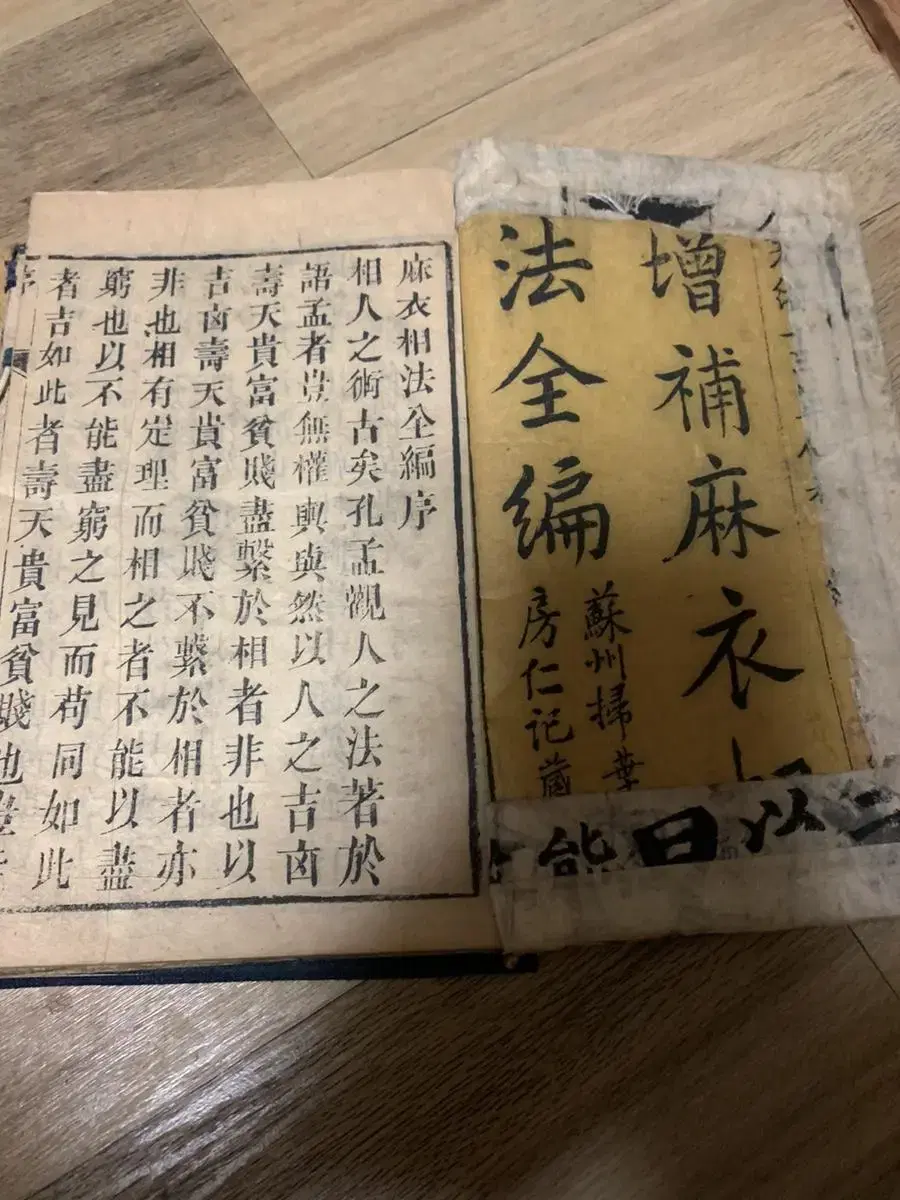 增補麻衣
法全編
蘇州掃葉
房仁记藏
二以日能
麻衣相法全編序
相人之術古矣孔孟觀人之法著於
語孟者豈無權輿與然以人之吉凶
壽夭貴富貧賤盡繫於相者非也以
吉凶壽夭貴富貧賤不繫於相者亦
非也相有定理而相之者不能以盡
窮也以不能盡窮之見而苟同如此
者吉如此者壽夭貴富貧賤也
序